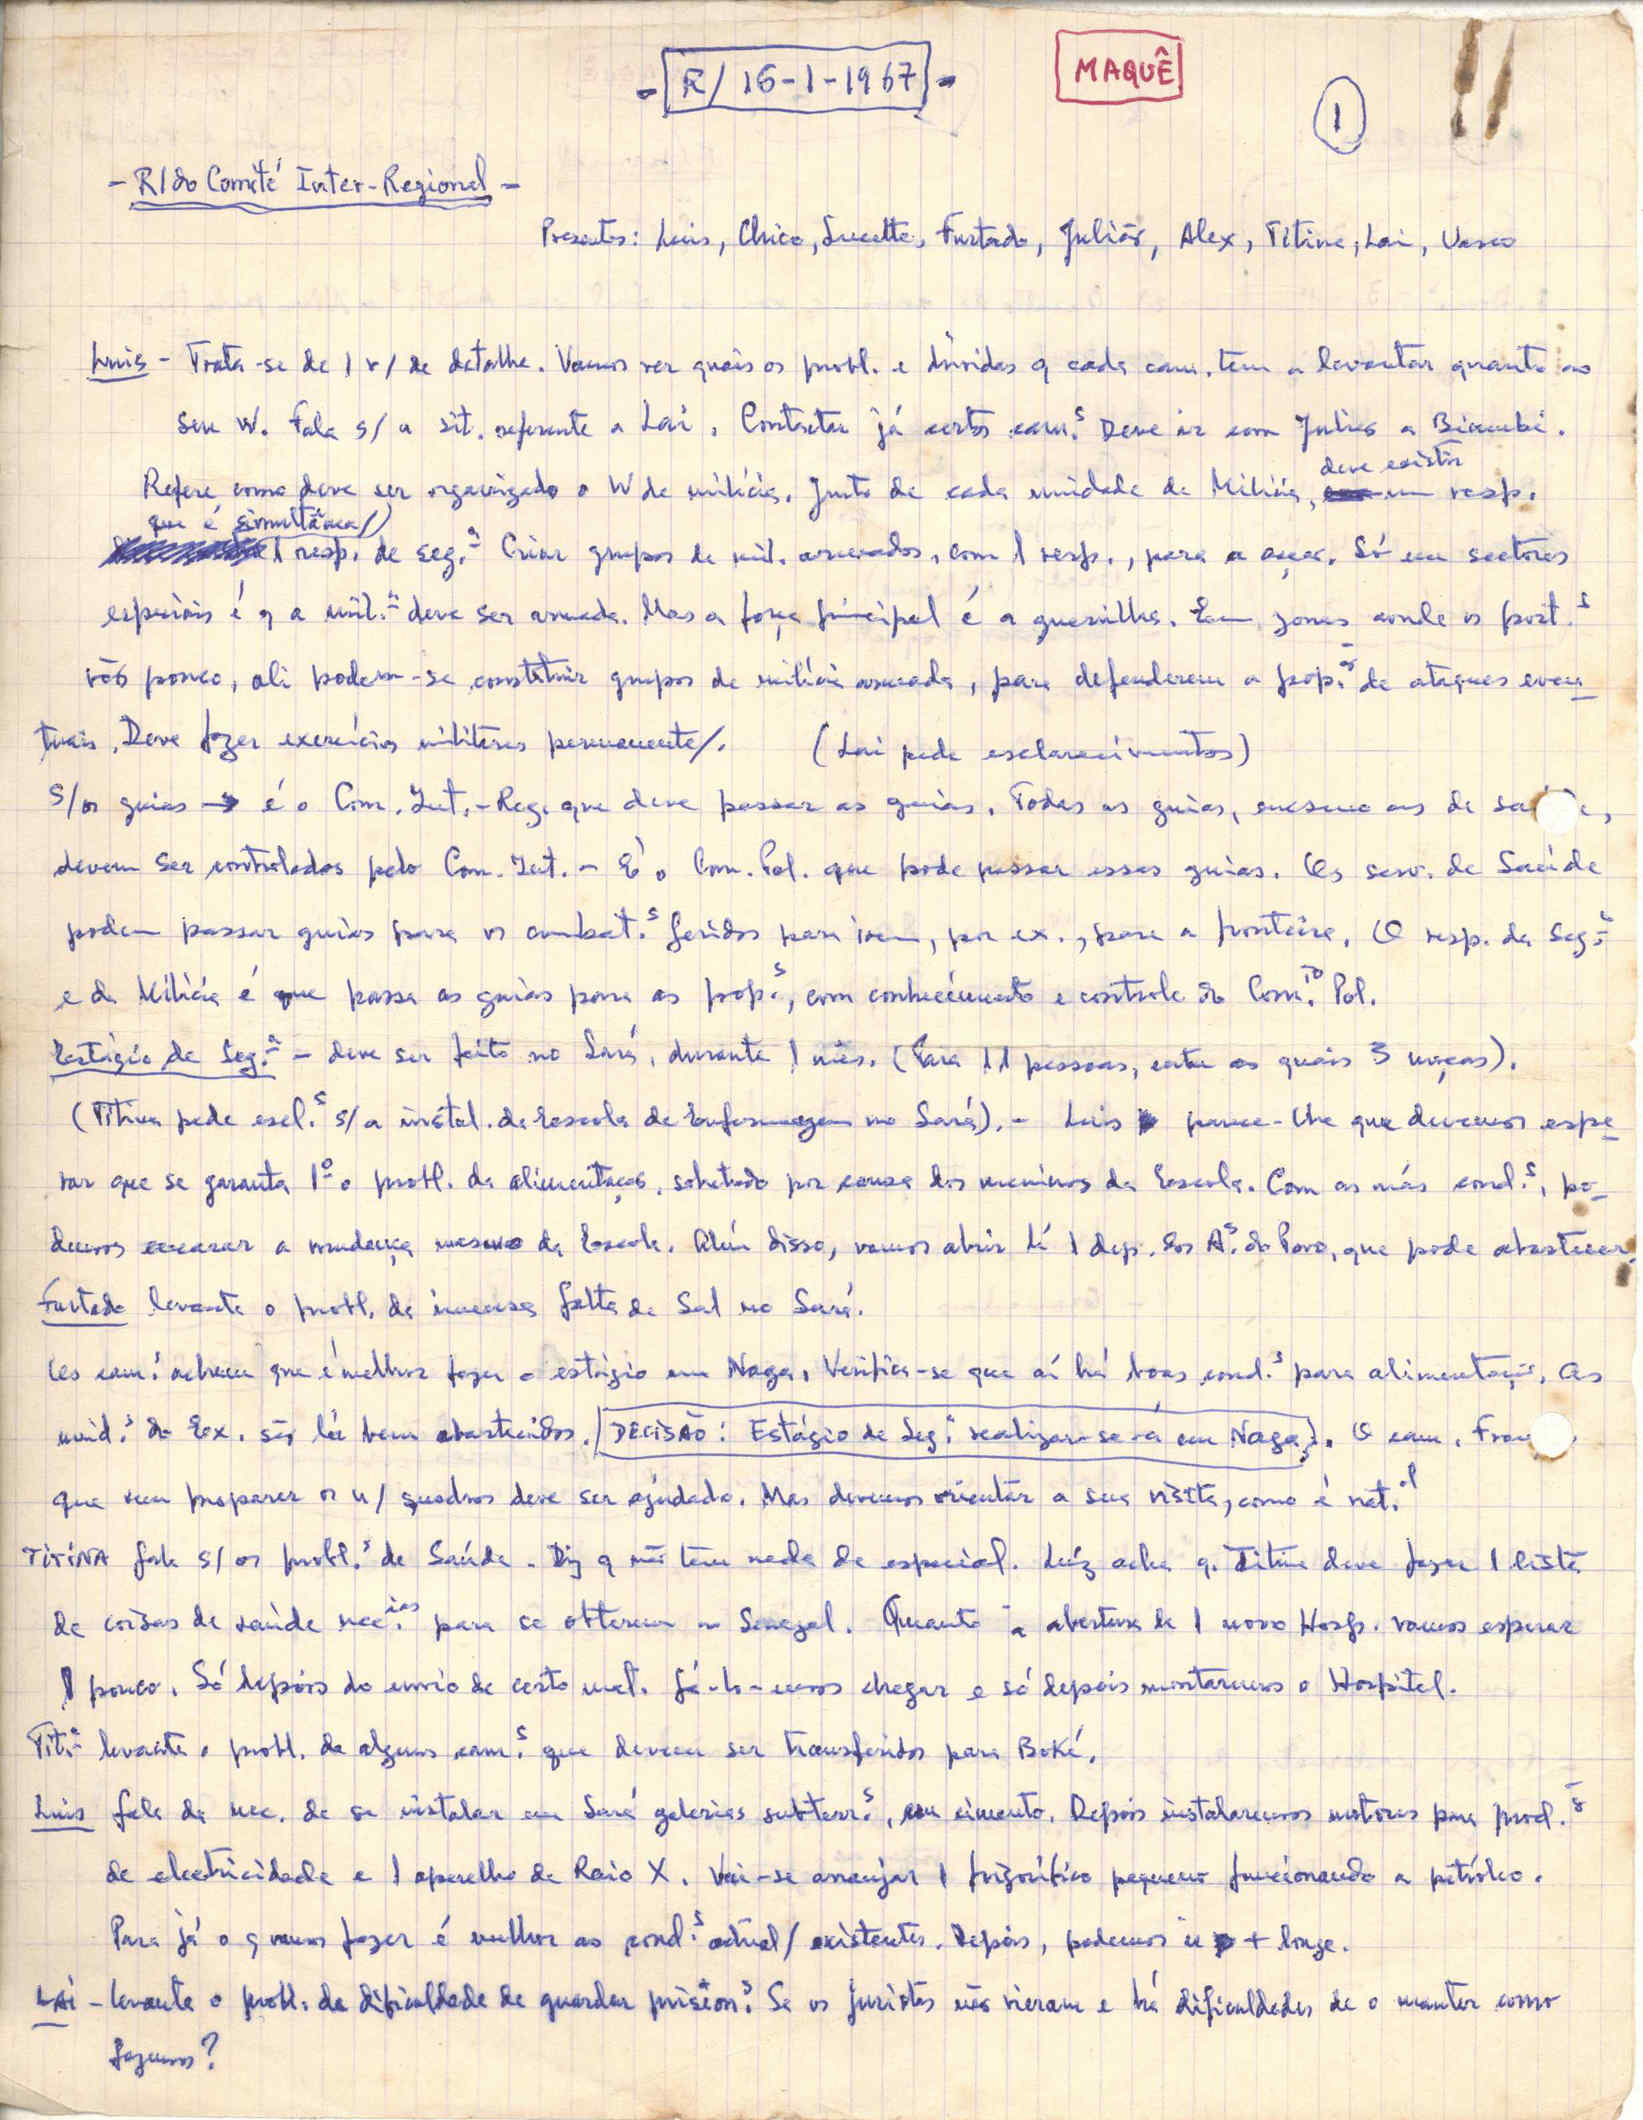 - R/ 16-1-1967 -
MAQUÊ
1
- R/do Comité Inter-Regional -
Presentes: Luis, Chico, Lucette, Furtado, Julião, Alex, Titina, Lai, Vasco
Luis - Trata-se de 1 r/ de detalhe. Vamos ver quais os probl. e dúvidas q cada cam. tem a levantar quanto ao
seu W. Fala s/ a sit. referente a Lai. Contactar já certos cam.s Deve ir com Julião a Biambi.
Refere como deve ser organizado o W de milícia. Junto de cada unidade de Milícia, deve existir um resp.
que é simultânea/ 1 resp. de seg.ª Criar grupos de mil. armados, com 1 resp., para a acção. Só em sectores
especiais é q a mil.ª deve ser armada. Mas a força principal é a guerrilha. Em zonas aonde os port.s
vão pouco, ali podem-se constituir grupos de milícia armada, para defenderem a pop.ão de ataques even-
tuais. Deve fazer exercícios militares permanente/. (Lai pede esclarecimentos)
S/ as guias → é o Com. Int.-Reg. que deve passar as guias. Todas as guias, mesmo as de saúde,
devem ser controladas pelo Com. Int. - É o Com. Pol. que pode passar essas guias. Os serv. de Saúde
podem passar guias para os combat.s feridos para irem, por ex., para a fronteira. O resp. da Seg.ª
e da Milícia é que passa as guias para as pop.s, com conhecimento e controle do Com.io Pol.
Estágio de Seg.ª - deve ser feito no Sará, durante 1 mês. (Para 11 pessoas, entre as quais 3 moças).
(Titina pede escl.s s/ a instal. da Escola de Enfermagem no Sará). - Luis parece-lhe que devemos espe-
rar que se garanta 1º o probl. da alimentação, sobretudo por causa dos meninos da Escola. Com as más cond.s, po-
demos encarar a mudança mesmo da Escola. Além disso, vamos abrir lá 1 dep. dos A.s do Povo, que pode abastecer.
Furtado levanta o probl. da imensa falta de Sal no Sará.
Os cam.s acham que é melhor fazer o estágio em Naga. Verifica-se que aí há boas cond.s para alimentação. As
unid.s do Ex. são lá bem abastecidas. DECISÃO: Estágio de Seg.ª realizar-se-á em Naga. O cam.
que vem preparar os n/ quadros deve ser ajudado. Mas devemos orientar a sua visita, como é nat.al
TITINA fala s/ os probl.s de Saúde. Diz q não tem nada de especial. Luiz acha q. Titina deve fazer 1 lista
de coisas de saúde nec.ias para se obterem no Senegal. Quanto à abertura de 1 novo Hosp. vamos esperar
1 pouco. Só depois do envio de certo mat. fá-lo-emos chegar e só depois montaremos o Hospital.
Tit.ª levanta o probl. de alguns cam.s que devem ser transferidos para Boké.
Luis fala da nec. de se instalar em Sará galerias subterr.s, em cimento. Depois instalaremos motores para prod.ão
de electricidade e 1 aparelho de Raio X. Vai-se arranjar 1 frigorífico pequeno funcionando a petróleo.
Para já o q vamos fazer é melhor as cond.s actual/ existentes. Depois, podemos ir + longe.
LAI - levanta o probl. da dificuldade de guardar prision.s Se os juristas não vieram e há dificuldades de o manter como
fazemos?